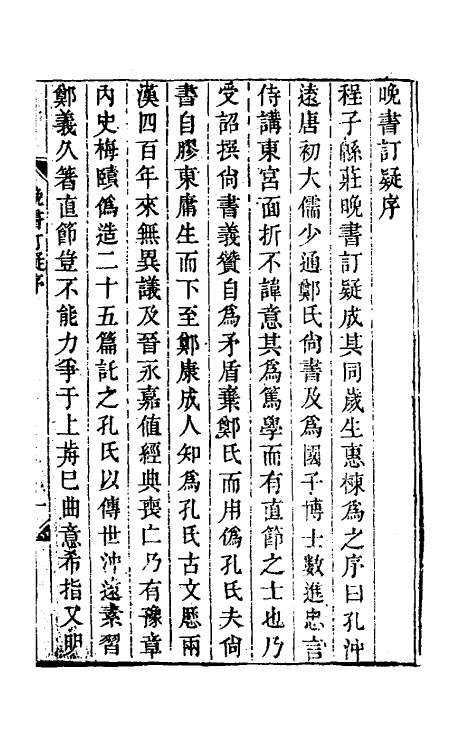 晚書訂疑序
程子緜莊晚書訂疑成其同歲生惠棟爲之序曰孔沖
遠唐初大儒少通鄭氏尙書及爲國子博士數進忠言
侍講東宮面折不諱意其爲篤學而有直節之士也乃
受詔撰尙書義贊自爲矛盾棄鄭氏而用僞孔氏夫尙
書自膠東庸生而下至鄭康成人知爲孔氏古文歷兩
漢四百年來無異議及晉永嘉値經典喪亡乃有豫章
內史梅賾僞造二十五篇託之孔氏以傳世沖遠素習
鄭義久著直節豈不能力爭于上苒已曲意希指又明
晚書訂疑序
一